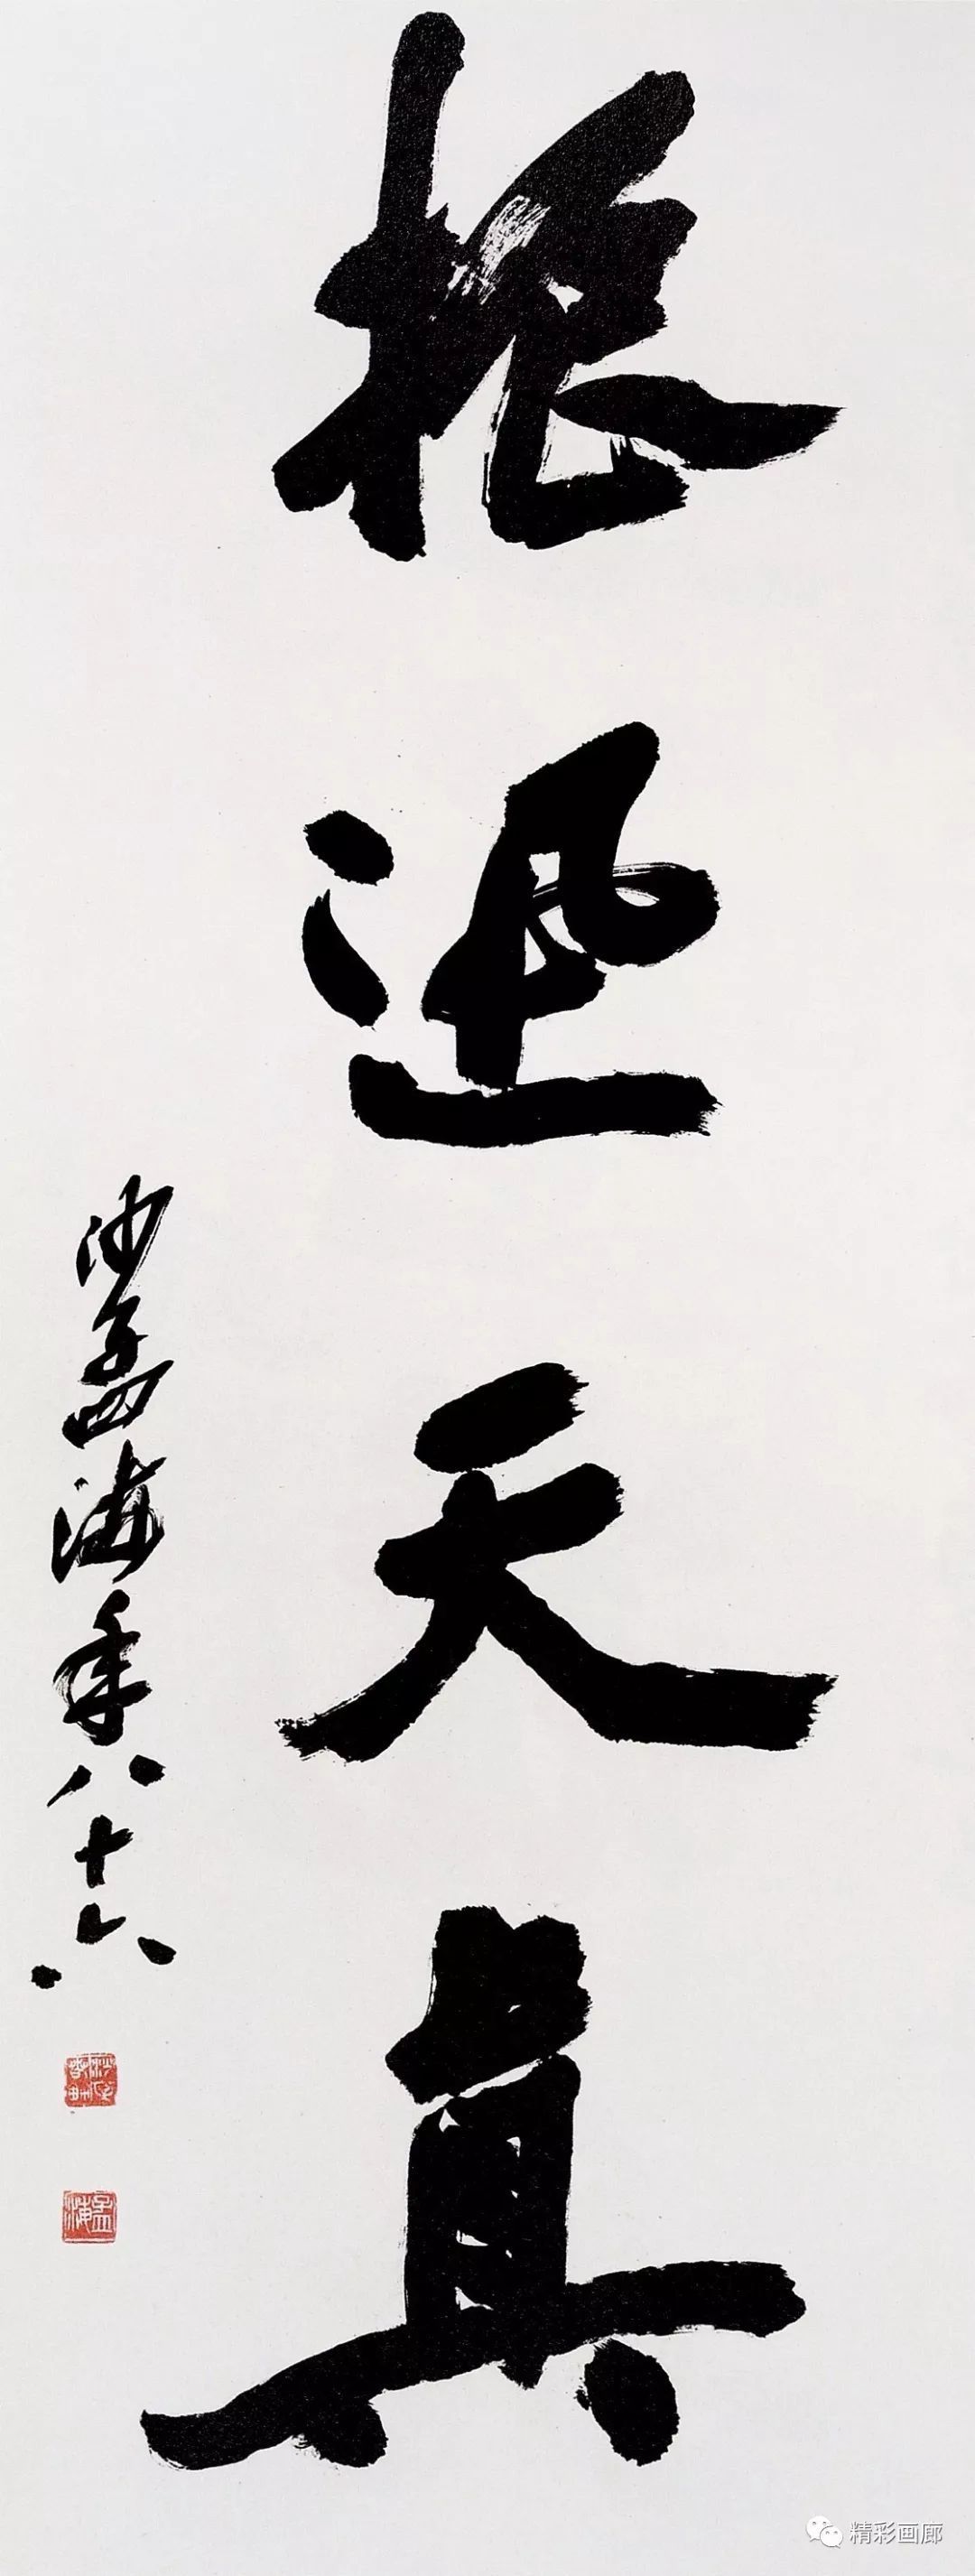 振迅天真
沙孟海年八十六
孟海
精彩画廊